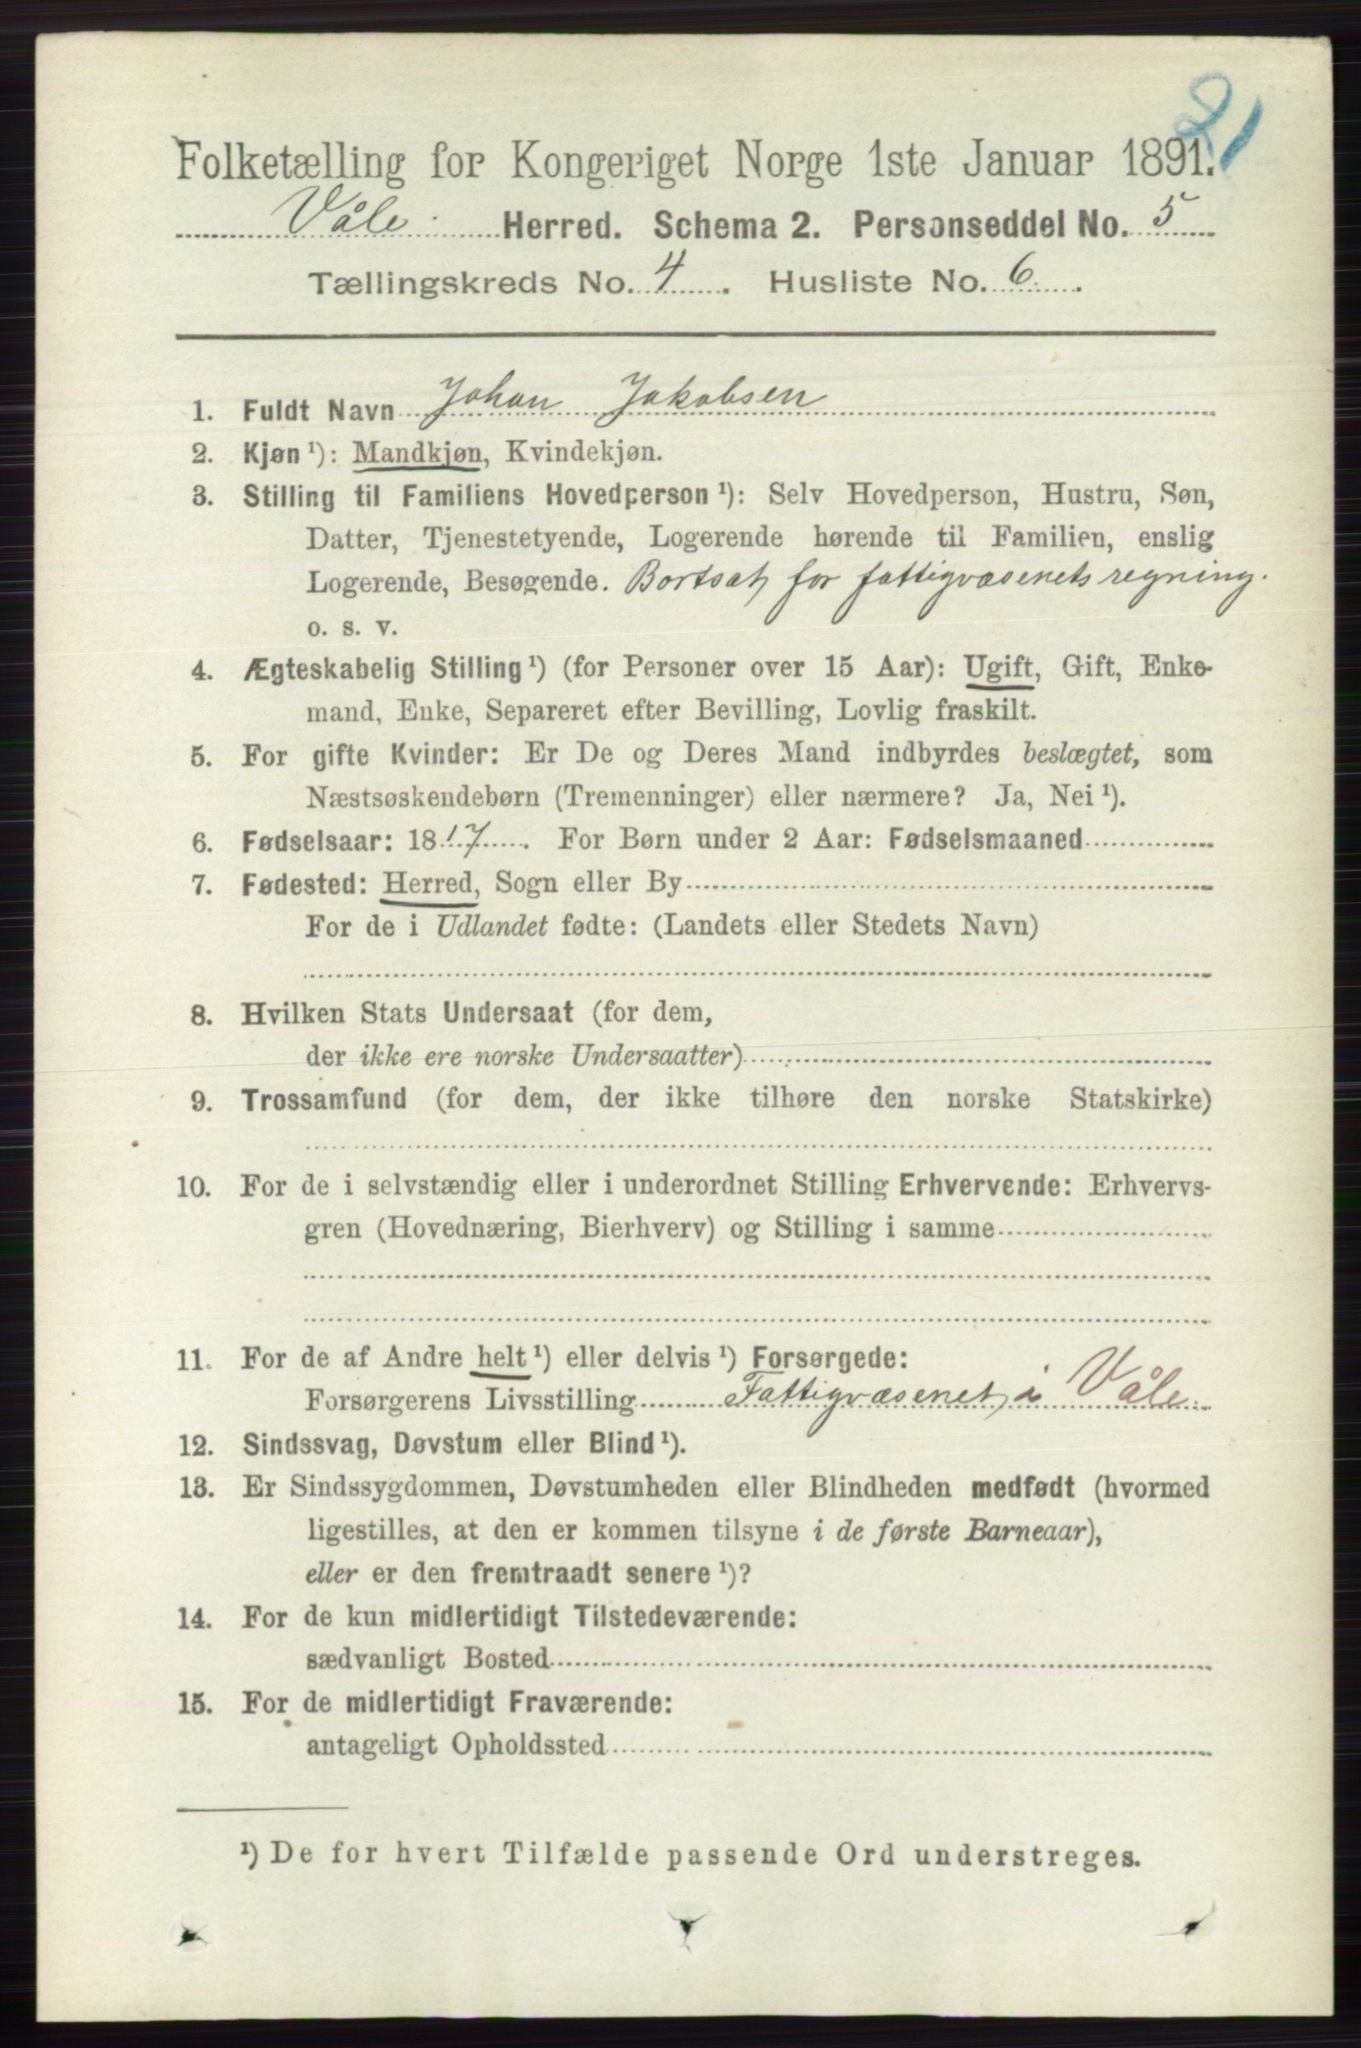 21
Folketælling for Kongeriget Norge 1ste Januar 1891.
Våle Herred. Schema 2. Personseddel No. 5
Tællingskreds No. 4. Husliste No. 6.
1. Fuldt Navn Johan Jakobsen
2. Kjøn ¹): Mandkjøn, Kvindekjøn.
3. Stilling til Familiens Hovedperson ¹): Selv Hovedperson, Hustru, Søn,
Datter, Tjenestetyende, Logerende hørende til Familien, enslig
Logerende, Besøgende. Bortsat for fattigvæsenets regning.
o. s. v.
4. Ægteskabelig Stilling ¹) (for Personer over 15 Aar): Ugift, Gift, Enke-
mand, Enke, Separeret efter Bevilling, Lovlig fraskilt.
5. For gifte Kvinder: Er De og Deres Mand indbyrdes beslægtet, som
Næstsøskendebørn (Tremenninger) eller nærmere? Ja, Nei ¹).
6. Fødselsaar: 1817. For Børn under 2 Aar: Fødselsmaaned
7. Fødested: Herred, Sogn eller By
For de i Udlandet fødte: (Landets eller Stedets Navn)
8. Hvilken Stats Undersaat (for dem,
der ikke ere norske Undersaatter)
9. Trossamfund (for dem, der ikke tilhøre den norske Statskirke)
10. For de i selvstændig eller i underordnet Stilling Erhvervende: Erhvervs-
gren (Hovednæring, Bierhverv) og Stilling i samme
11. For de af Andre helt ¹) eller delvis ¹) Forsørgede:
Forsørgerens Livsstilling Fattigvæsenet i Våle
12. Sindssvag, Døvstum eller Blind ¹).
13. Er Sindssygdommen, Døvstumheden eller Blindheden medfødt (hvormed
ligestilles, at den er kommen tilsyne i de første Barneaar),
eller er den fremtraadt senere ¹)?
14. For de kun midlertidigt Tilstedeværende:
sædvanligt Bosted
15. For de midlertidigt Fraværende:
antageligt Opholdssted
¹) De for hvert Tilfælde passende Ord understreges.